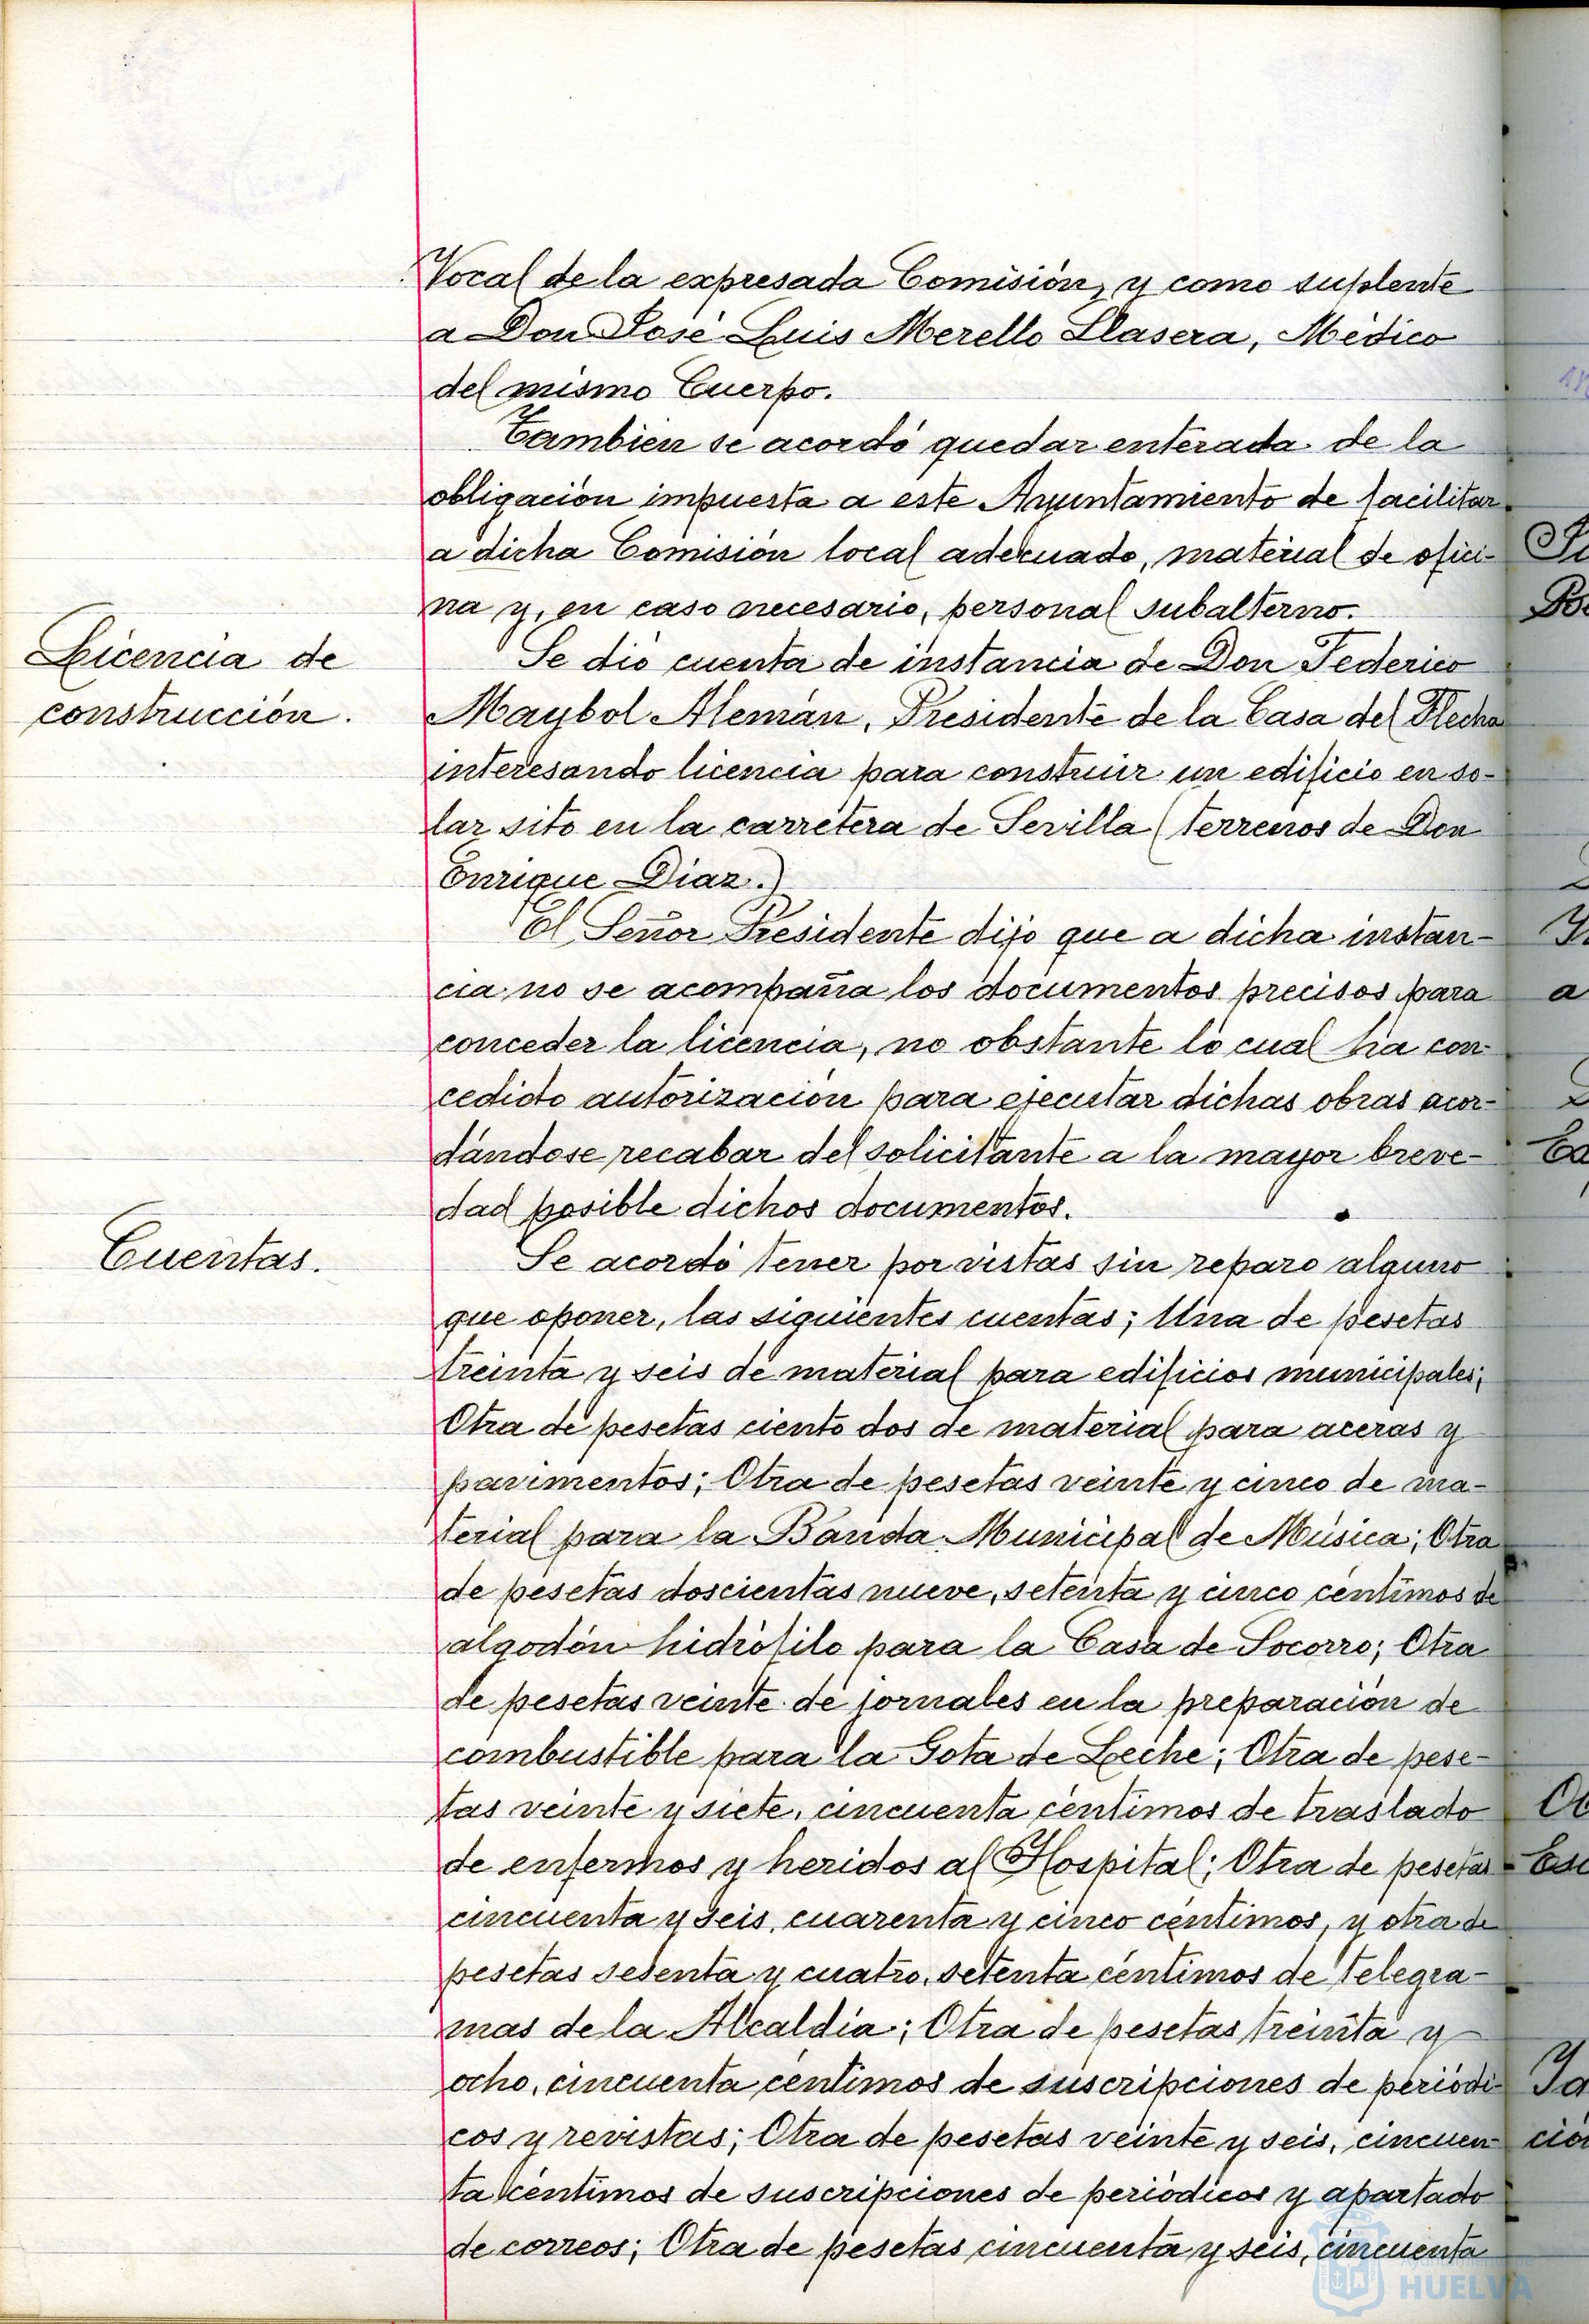 Vocal de la expresada Comisión, y como suplente
a Don José Luis Merello Llasera, Médico
del mismo Cuerpo.
Tambien se acordó quedar enterada de la
obligación impuesta a este Ayuntamiento de facilitar
a dicha Comisión local adecuado, material de ofici-
na y, en caso necesario, personal subalterno.
Licencia de
construcción.
Se dió cuenta de instancia de Don Federico
Maybol Alemán, Presidente de la Casa del Flecha
interesando licencia para construir un edificio en so-
lar sito en la carretera de Sevilla (terrenos de Don
Enrique Diaz.)
El Señor Presidente dijo que a dicha instan-
cia no se acompaña los documentos precisos para
conceder la licencia, no obstante lo cual ha con-
cedido autorización para ejecutar dichas obras acor-
dándose recabar del solicitante a la mayor breve-
dad posible dichos documentos.
Cuentas.
Se acordó tener por vistas sin reparo alguno
que oponer, las siguientes cuentas; Una de pesetas
treinta y seis de material para edificios municipales;
Otra de pesetas ciento dos de material para aceras y
pavimentos; Otra de pesetas veinte y cinco de ma-
terial para la Banda Municipal de Música; Otra
de pesetas doscientas nueve, setenta y cinco céntimos de
algodón hidrófilo para la Casa de Socorro; Otra
de pesetas veinte de jornales en la preparación de
combustible para la Gota de Leche; Otra de pese-
tas veinte y siete, cincuenta céntimos de traslado
de enfermos y heridos al Hospital; Otra de pesetas
cincuenta y seis, cuarenta y cinco céntimos, y otra de
pesetas sesenta y cuatro, setenta céntimos de telegra-
mas de la Alcaldía; Otra de pesetas treinta y
ocho, cincuenta céntimos de suscripciones de periódi-
cos y revistas; Otra de pesetas veinte y seis, cincuen-
ta céntimos de suscripciones de periódicos y apartado
de correos; Otra de pesetas cincuenta y seis, cincuenta
HUELVA